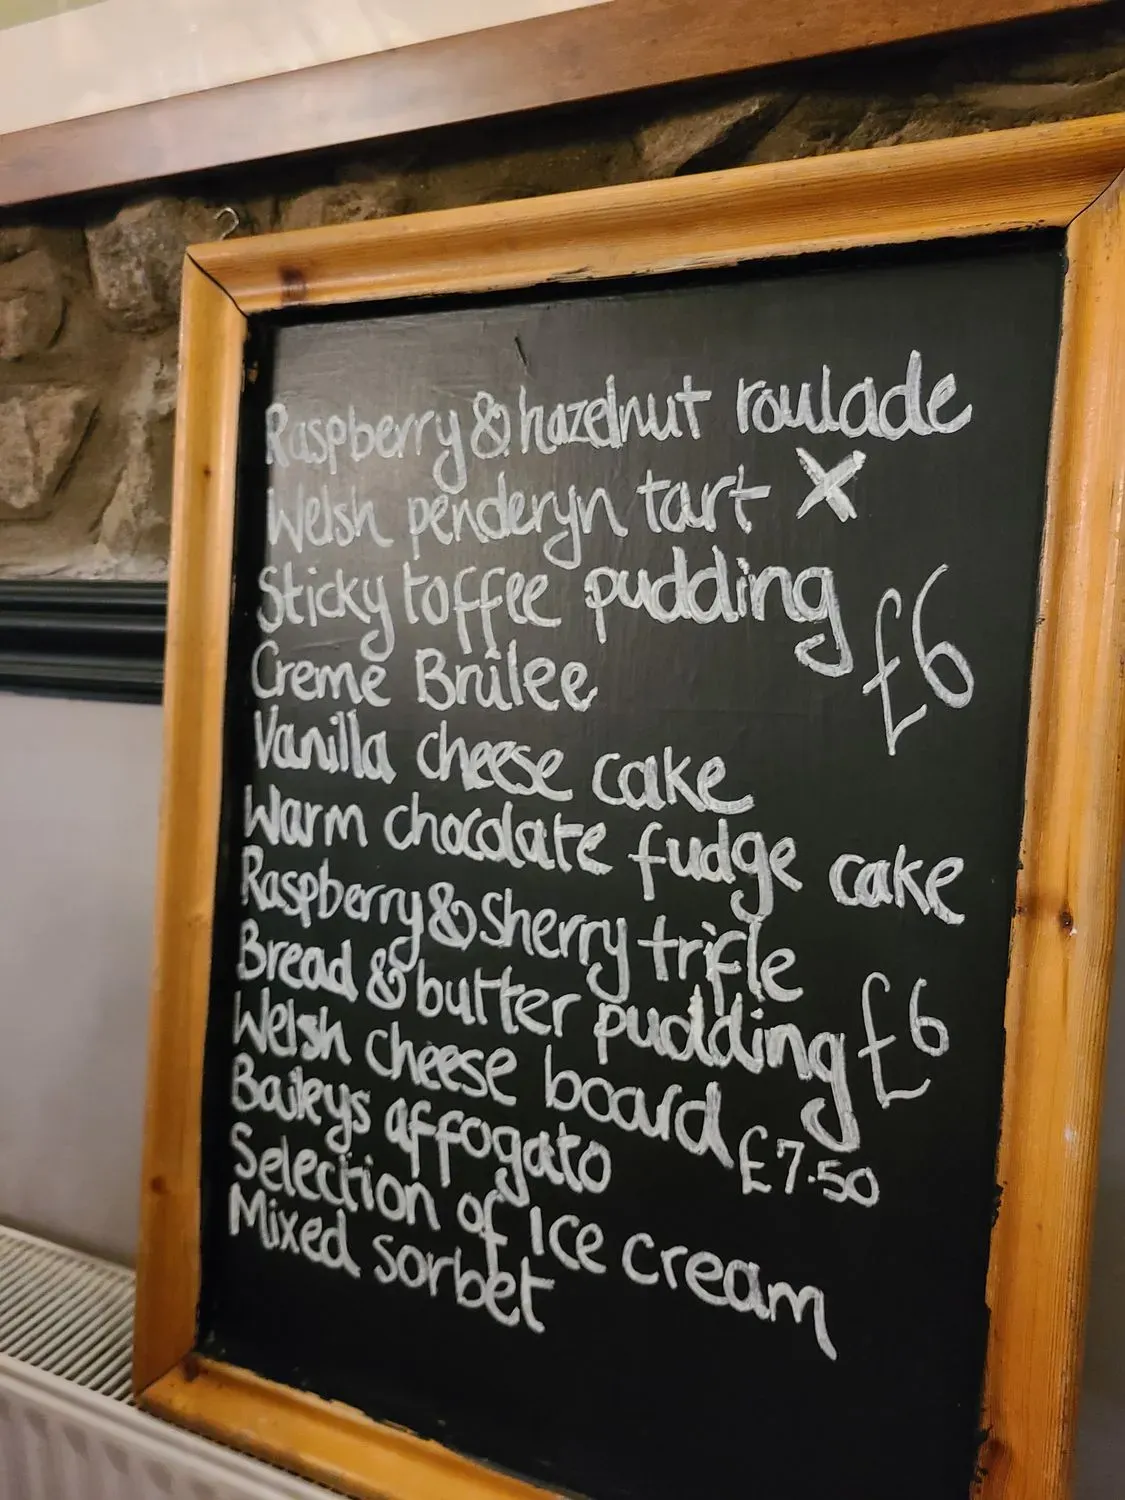 Raspberry & hazelnut roulade
Welsh penderyn tart X
Sticky toffee pudding £6
Creme Brûlee
Vanilla cheese cake
Warm chocolate fudge cake
Raspberry & Sherry trifle
Bread & butter pudding £6
Welsh cheese board £7.50
Baileys affogato
Selection of Ice cream
Mixed sorbet